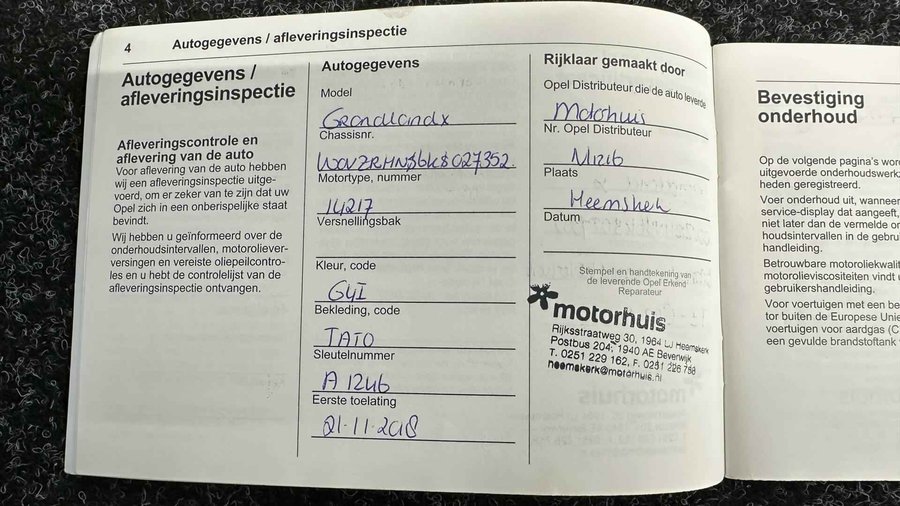 4 Autogegevens / afleveringsinspectie
Autogegevens /
afleveringsinspectie
Afleveringscontrole en
aflevering van de auto
Voor aflevering van de auto hebben
wij een afleveringsinspectie uitge-
voerd, om er zeker van te zijn dat uw
Opel zich in een onberispelijke staat
bevindt.
Wij hebben u geïnformeerd over de
onderhoudsintervallen, motoroliever-
versingen en vereiste oliepeilcontro-
les en u hebt de controlelijst van de
afleveringsinspectie ontvangen.
Autogegevens
Model
Grandlandx
Chassisnr.
Motortype, nummer
14217
Versnellingsbak
Kleur, code
G4I
Bekleding, code
TATO
Sleutelnummer
A 1246
Eerste toelating
21-11-2018
Rijklaar gemaakt door
Opel Distributeur die de auto leverde
Motorhuis
Nr. Opel Distributeur
Plaats
Heemskerk
Datum
Stempel en handtekening van
de leverende Opel Erkend
Reparateur
motorhuis
Rijksstraatweg 30, 1964 LJ Heemskerk
Postbus 204, 1940 AE Beverwijk
T. 0251 229 162, F. 0251 226 758
heemskerk@motorhuis.nl
Bevestiging
onderhoud
Op de volgende pagina's
uitgevoerde
heden geregistreerd.
Voer onderhoud uit, wanneer
service-display dat aangeeft,
niet later dan de vermelde
houdsintervallen in de
handleiding.
Betrouwbare
motorolieviscositeiten vindt
gebruikershandleiding.
Voor voertuigen met een
tor buiten de Europese
voertuigen voor aardgas
een gevulde brandstoftank